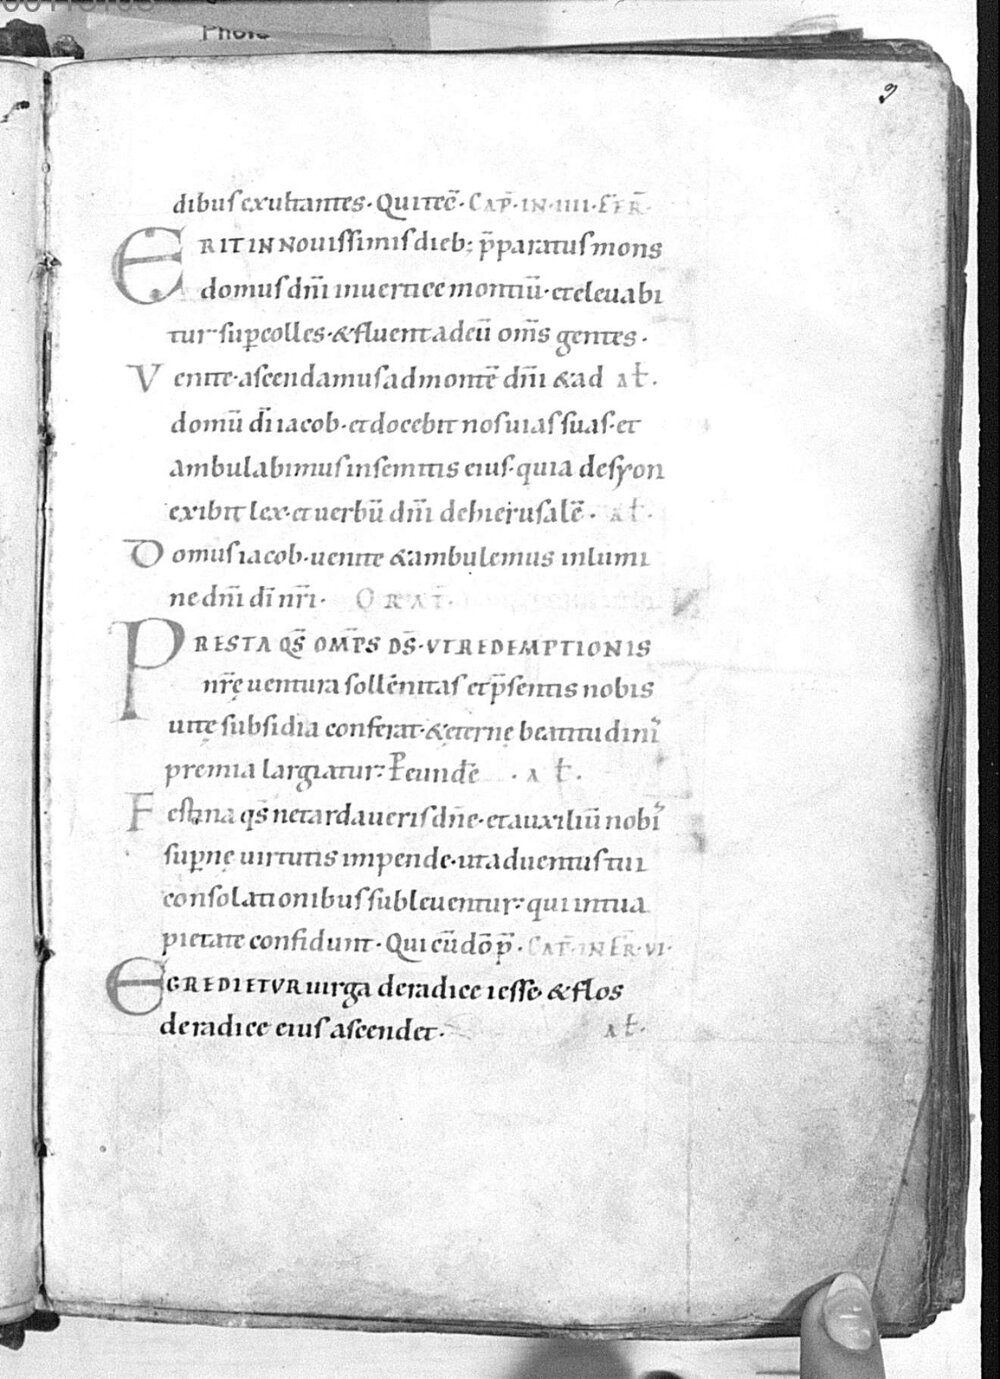 9
dibus exultantes · Qui tec̄ · CAP̄ · IN · IIII · FĒR̄ ·
ERIT IN Nouissimis dieb; p̄paratus mons
domus dn̄i in uertice montiū · et eleuabi
tur sup colles · & fluent ad eū om̄s gentes ·
Venite · ascendamus ad montē dn̄i & ad al̄ ·
domū dī iacob · et docebit nos uias suas · et
ambulabimus in semitis eius · quia de syon
exibit lex · et uerbū dn̄i de hierusalē · al̄ ·
Domus iacob · uenite & ambulemus in lumi
ne dn̄i dī nr̄i · ORAT̄ ·
PRESTA QS̄ OM̄PS DS̄ · VT REDEMPTIONIS
nr̄ę uentura sollēnitas et p̄sentis nobis
uitę subsidia conferat · & ęternę beatitudinis
premia largiatur : P eundē · al̄ ·
Festina qs̄ ne tardaueris dn̄e · et auxiliū nobis
supnę uirtutis impende · ut aduentus tui
consolationibus subleuentur : qui in tua
pietate confidunt · Qui cū dō p̄ · CAP̄ · IN FĒR̄ · VI ·
EGREDIETVR uirga de radice iesse · & flos
de radice eius ascendet · al̄ ·